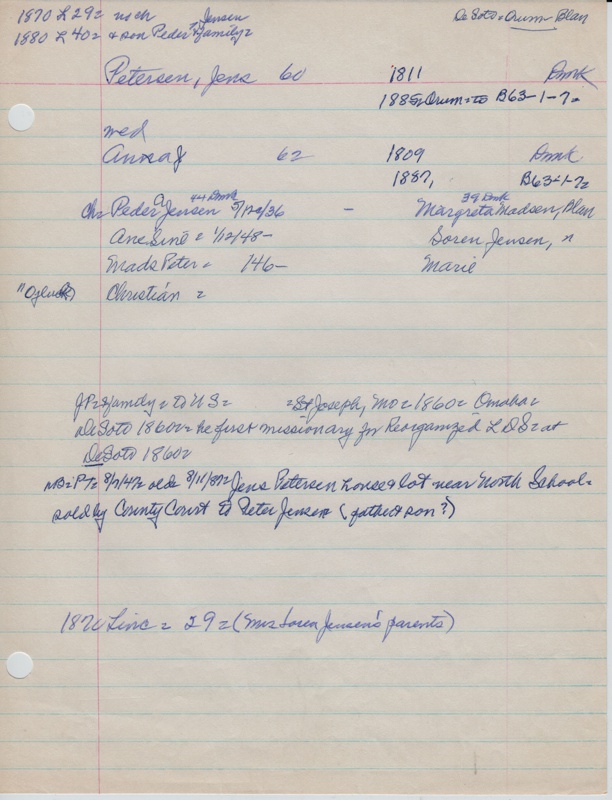 1870 L 29= no ch DeSoto= Orum= Blan
1880 L 40= & son Peder Jensen & family=
Petersen, Jens 60 1811 Dmk
1885= Orum= to B63-1-7=
med
62 1809 Dmk
1887, B63-1-7=
ch= Peder Jensen 44 Dmk 5/20/36 - Margreta Madsen, Blan 39 Dmk
Ane Sine = 1/12/48- Soren Jensen, "
Mads Peter = 146- Marie
Christian =
JP= & family= to US= =St Joseph, Mo= 1860= Omaha=
DeSoto 1860== he first missionary for Reorganized LDS= at
DeSoto 1860=
Jens Petersen house & lot near North School=
sold by County Court to Peter Jensen (father & son?)
1870 Linc = 29 = (Mrs Soren Jensen's parents)